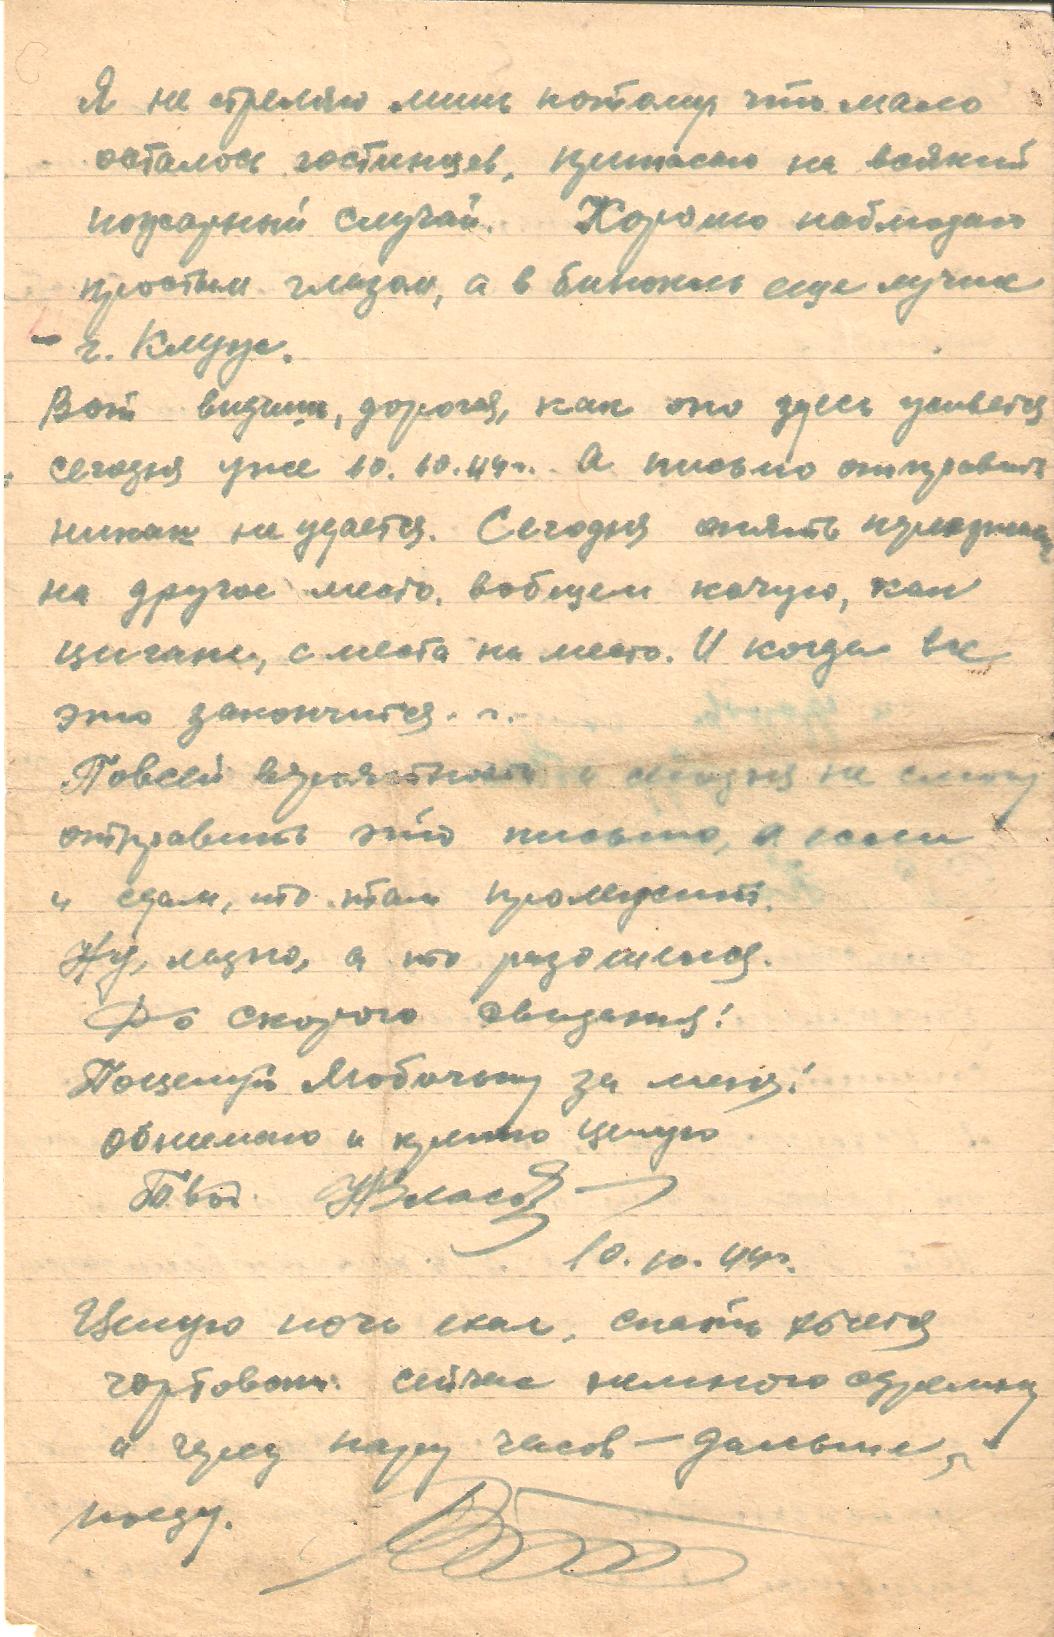 Я не стреляю лишь потому что мало
осталось гостинцев, припасаю на всякий
пожарный случай. Хорошо наблюдаю
простым глазом, а в бинокль еще лучше
г. Клуж.
Вот видишь, дорогая, как оно здесь
сегодня уже 10.10.44г. А письмо отправить
никак не удается. Сегодня опять
на другое место. вобщем кочую, как
цигане, с места на место. И когда все
это закончится...
Повсей вероятности и сегодня не смогу
отправить это письмо, а если
и сдам, то там пролежит.
Ну, ладно, а то разошелся.
До скорого свидания!
Поцелуй Любочку за меня!
Обнимаю и крепко целую
Твой НВласов
10.10.44г.
Целую ночь ехал, спать хочется
чортовски. сейчас немного сдремну
а через пару часов — дальше
поеду.